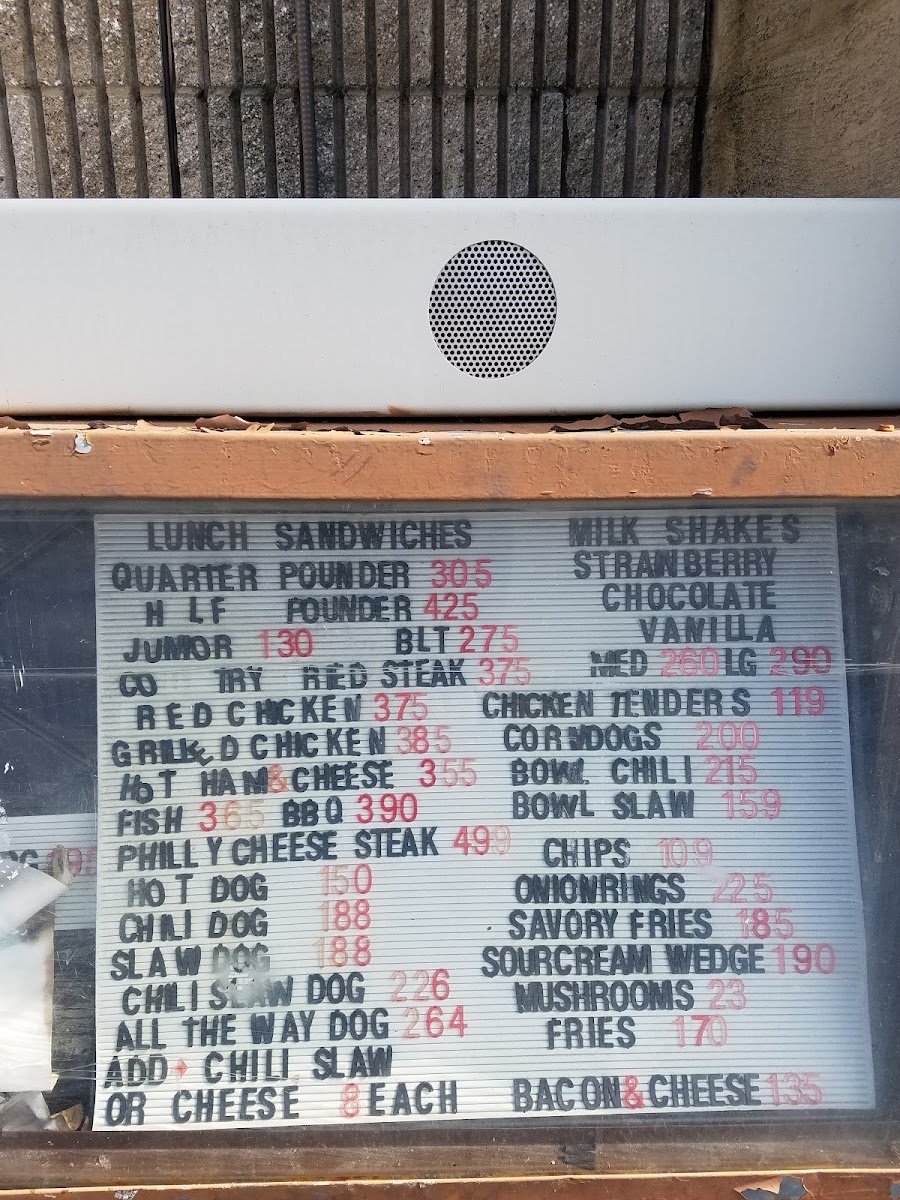 LUNCH SANDWICHES
QUARTER POUNDER 305
H LF POUNDER 425
JUMIOR 130 BLT 275
CO TRY RIED STEAK 375
RED CHICKEN 375
GRILLED CHICKEN 385
HOT HAM & CHEESE 355
FISH 365 BBQ 390
PHILLY CHEESE STEAK 499
HOT DOG 150
CHILI DOG 188
SLAW DOG 188
CHILI SLAW DOG 226
ALL THE WAY DOG 264
ADD CHILI SLAW
OR CHEESE 8 EACH
MILK SHAKES
STRAWBERRY
CHOCOLATE
VANILLA
MED 260 LG 290
CHICKEN TENDERS 119
CORNDOGS 200
BOWL CHILI 215
BOWL SLAW 159
CHIPS 109
ONIONRINGS 225
SAVORY FRIES 185
SOURCREAM WEDGE 190
MUSHROOMS 23
FRIES 170
BACON & CHEESE 135